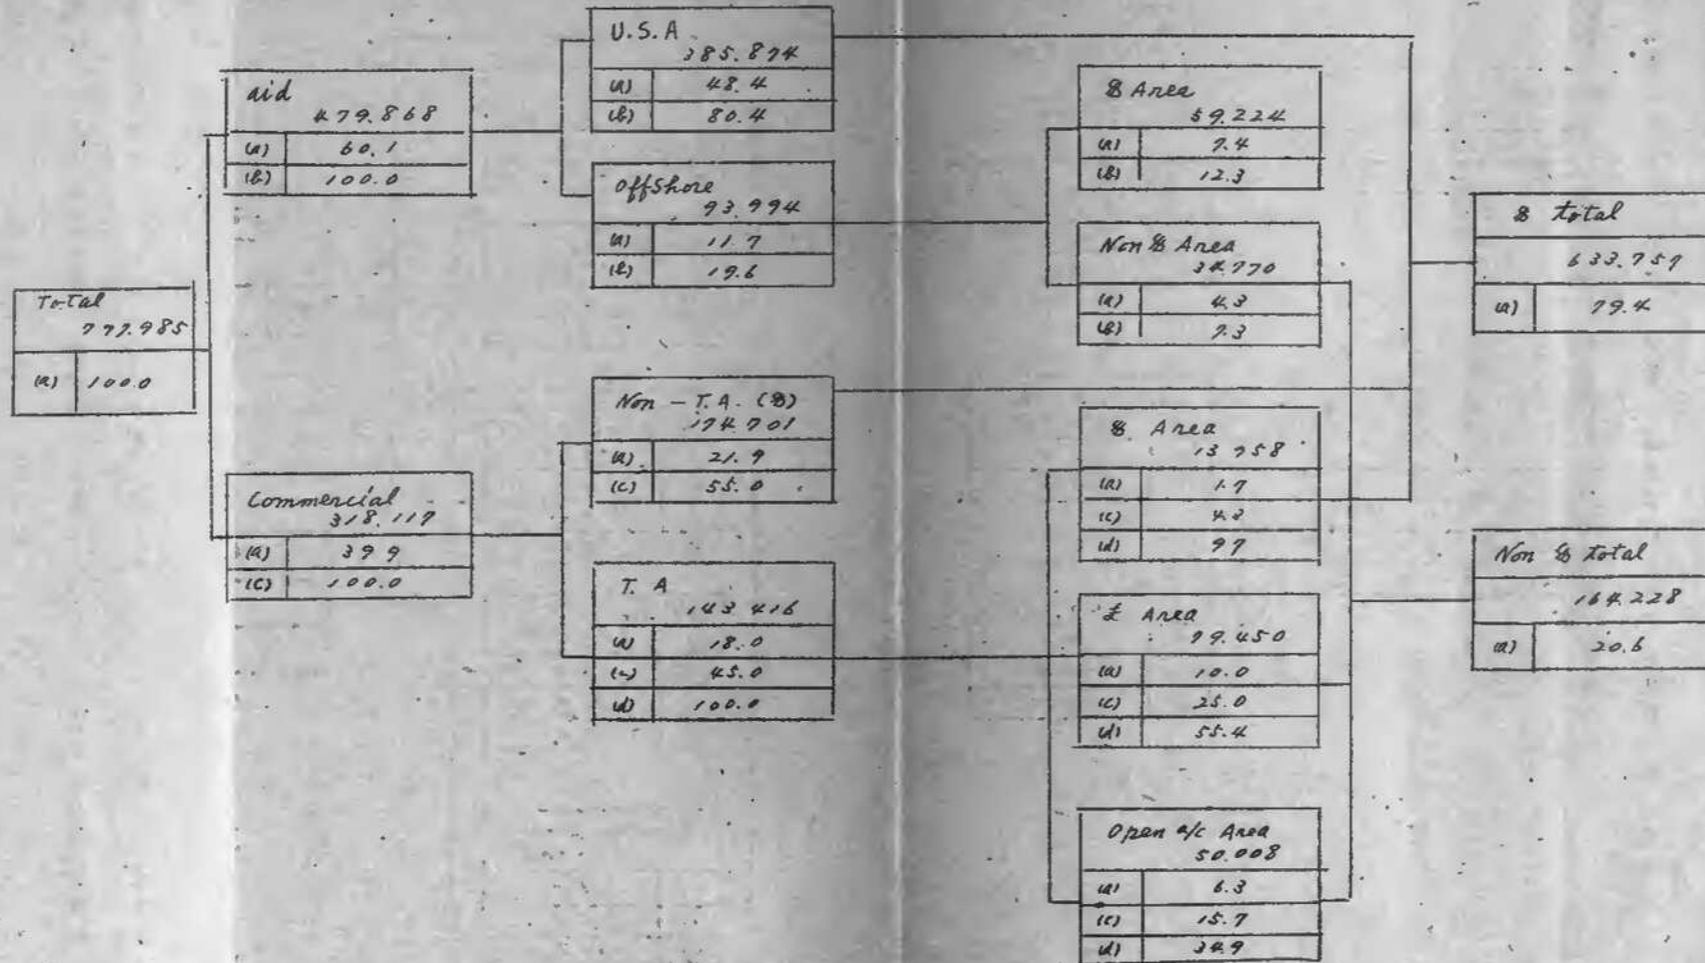 Total
797.985
(a) 100.0
aid
479.868
(a) 60.1
(b) 100.0
Commercial
318.117
(a) 39 9
(c) 100.0
U.S.A
385.874
(a) 48.4
(b) 80.4
Offshore
93.994
(a) 11.7
(b) 19.6
Non - T.A. ($)
174.701
(a) 21.9
(c) 55.0
T. A
143 416
(a) 18.0
(c) 45.0
(d) 100.0
$ Area
59.224
(a) 7.4
(b) 12.3
Non $ Area
34.770
(a) 4.3
(b) 7.3
$ Area
13 958
(a) 1.7
(c) 4.3
(d) 97
£ Area
79.450
(a) 10.0
(c) 25.0
(d) 55.4
Open a/c Area
50.008
(a) 6.3
(c) 15.7
(d) 34.9
$ total
633.757
(a) 79.4
Non $ total
164.228
(a) 20.6